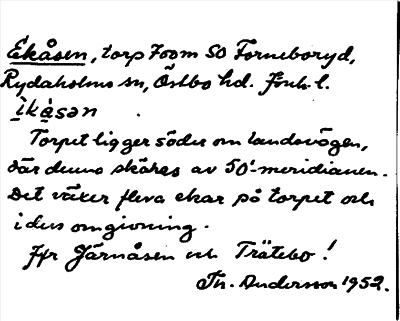 Ekåsen, torp 700m SO Forneboryd,
Rydaholms sn, Östbo hd. Jönk. l.
ìkåsən
Torpet ligger söder om landsvägen,
där denna skäres av 50'-meridianen.
Det växer flera ekar på torpet och
i dess omgivning.
Jfr Järnåsen och Trätebo!
Th. Andersson 1952.